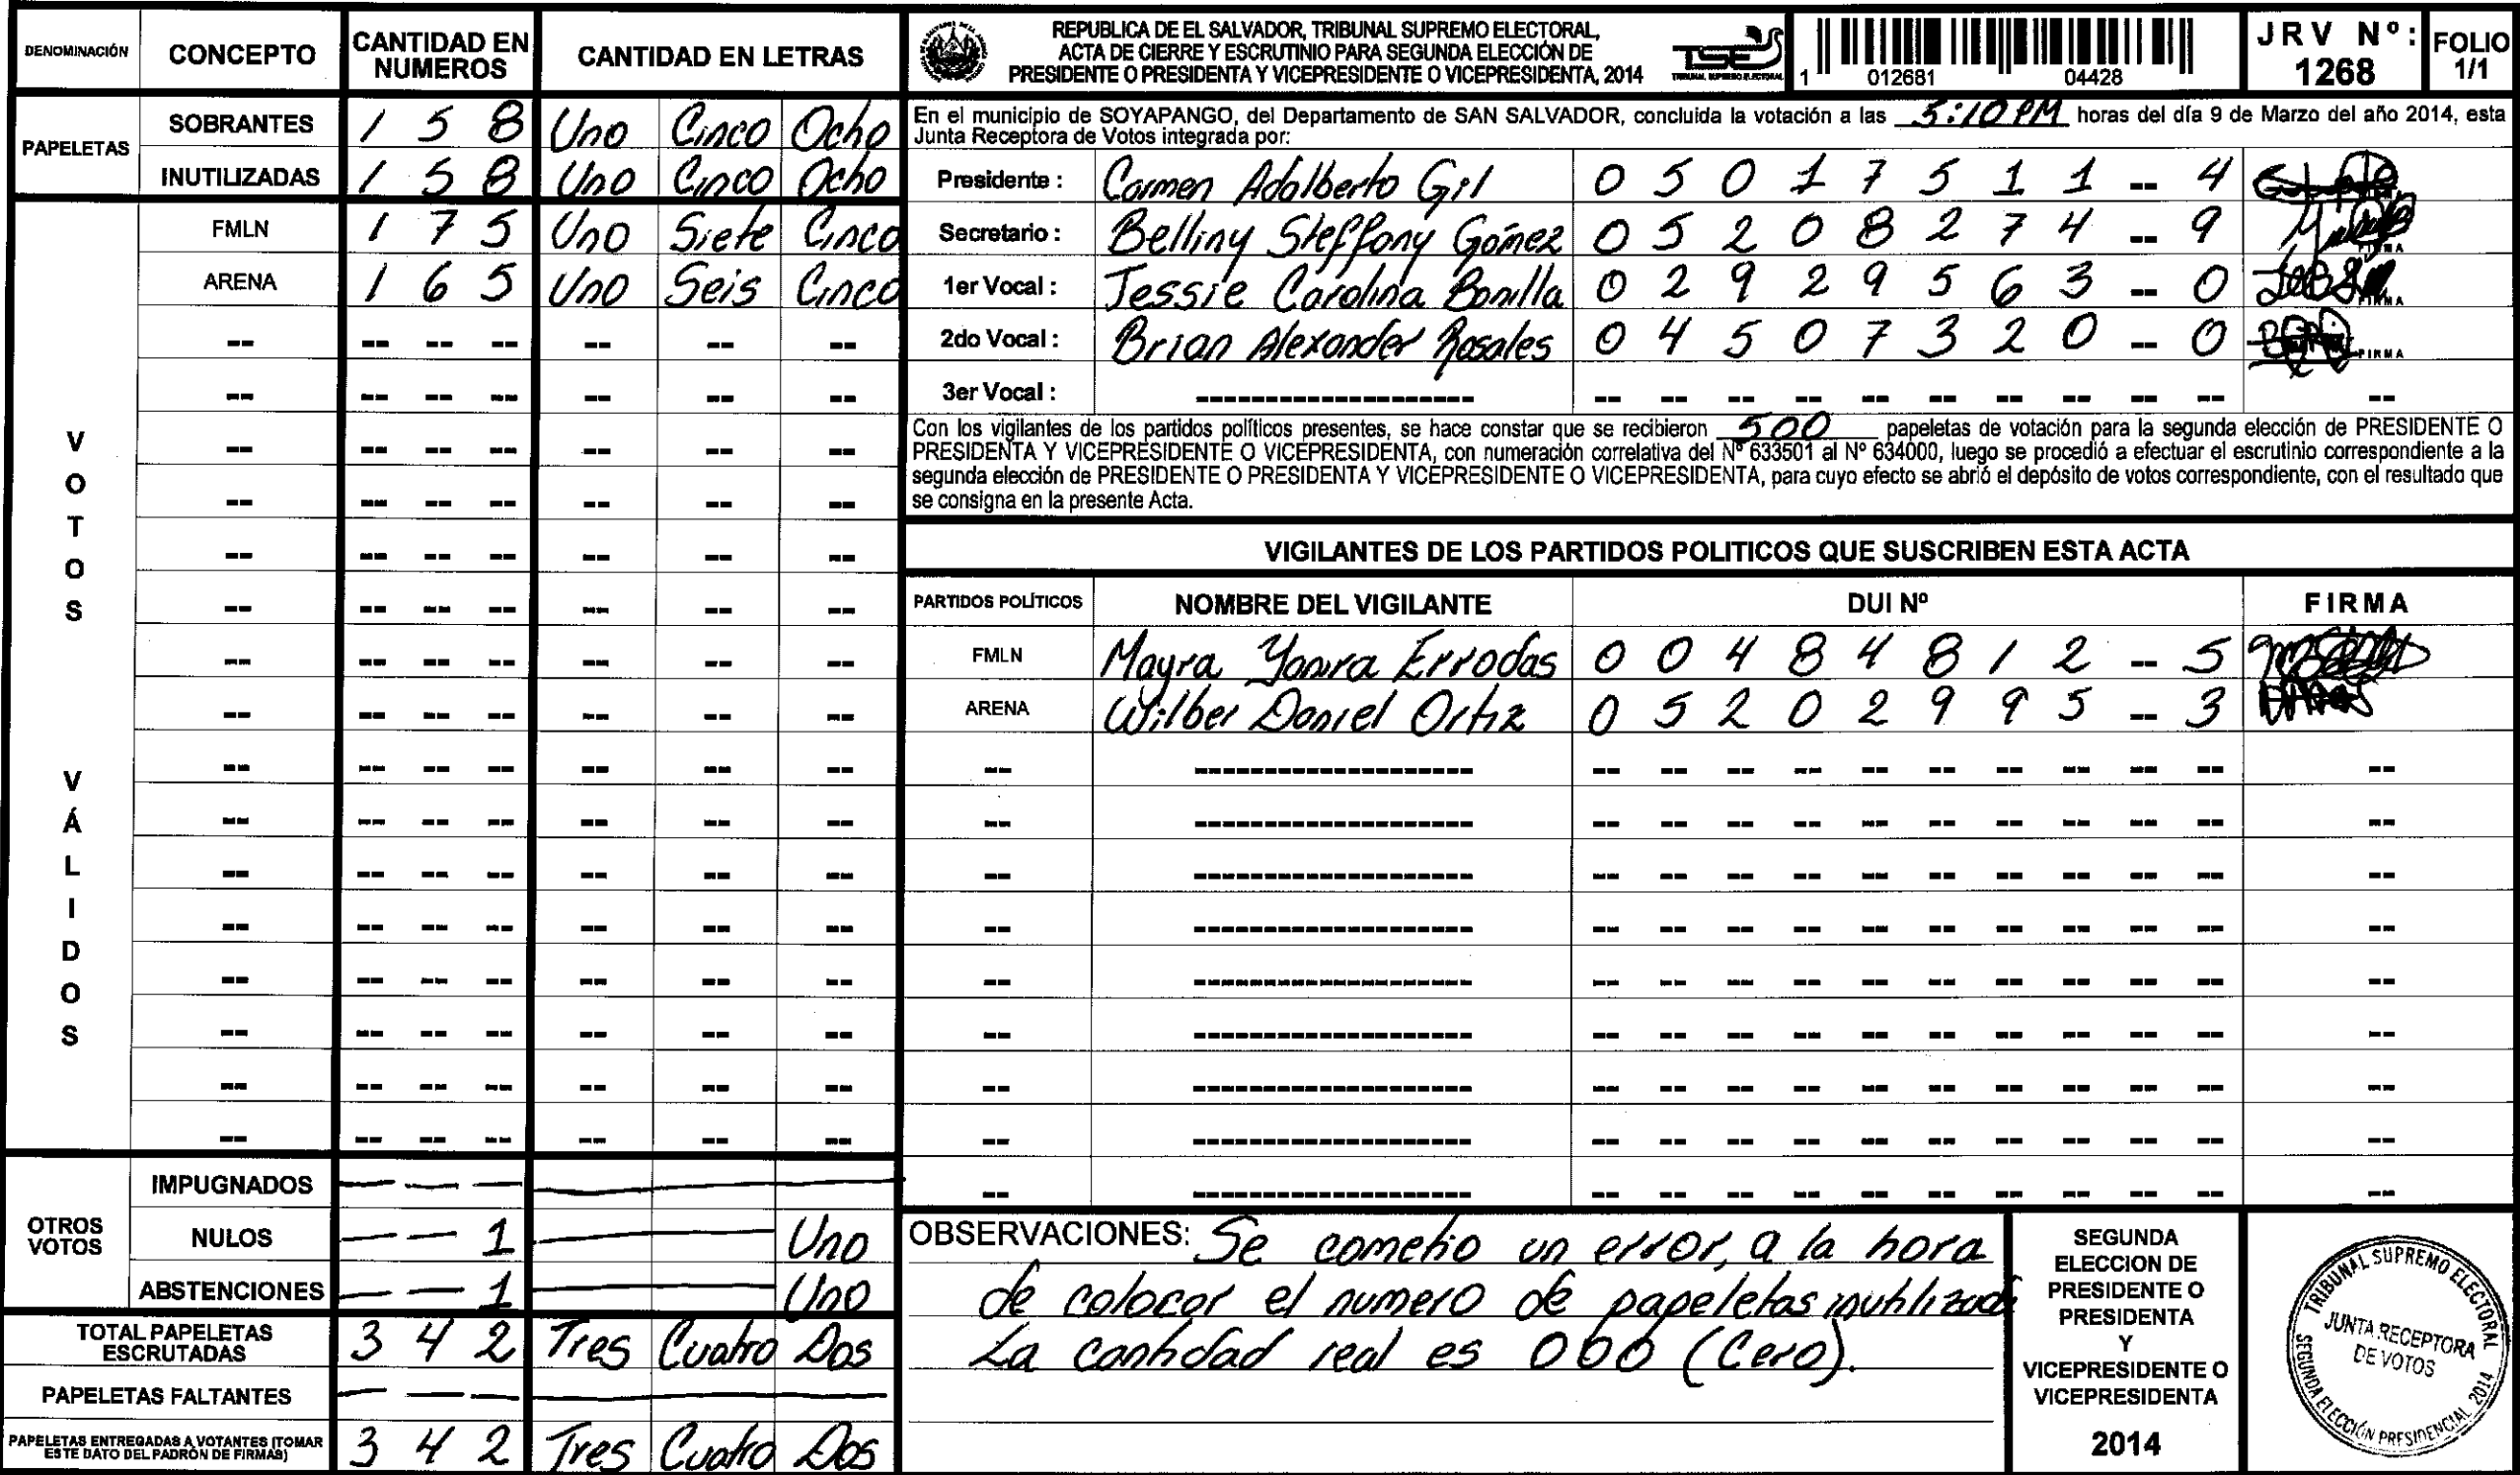 DENOMINACIÓN CONCEPTO CANTIDAD EN NUMEROS CANTIDAD EN LETRAS
PAPELETAS
SOBRANTES 1 5 8 Uno Cinco Ocho
INUTILIZADAS 1 5 8 Uno Cinco Ocho
VOTOS VÁLIDOS
FMLN 1 7 5 Uno Siete Cinco
ARENA 1 6 5 Uno Seis Cinco
OTROS VOTOS
IMPUGNADOS — — —
NULOS — — 1 Uno
ABSTENCIONES — — 1 Uno
TOTAL PAPELETAS ESCRUTADAS 3 4 2 Tres Cuatro Dos
PAPELETAS FALTANTES — — —
PAPELETAS ENTREGADAS A VOTANTES (TOMAR ESTE DATO DEL PADRÓN DE FIRMAS) 3 4 2 Tres Cuatro Dos
REPUBLICA DE EL SALVADOR, TRIBUNAL SUPREMO ELECTORAL,
ACTA DE CIERRE Y ESCRUTINIO PARA SEGUNDA ELECCIÓN DE
PRESIDENTE O PRESIDENTA Y VICEPRESIDENTE O VICEPRESIDENTA, 2014
TSE
TRIBUNAL SUPREMO ELECTORAL
1 012681 04428
JRV Nº: 1268
FOLIO 1/1
En el municipio de SOYAPANGO, del Departamento de SAN SALVADOR, concluida la votación a las 5:10 PM horas del día 9 de Marzo del año 2014, esta
Junta Receptora de Votos integrada por:
Presidente : Carmen Adalberto Gil 0 5 0 1 7 5 1 1 -- 4
Secretario : Belliny Steffany Gómez 0 5 2 0 8 2 7 4 -- 9 FIRMA
1er Vocal : Jessie Carolina Bonilla 0 2 9 2 9 5 6 3 -- 0 FIRMA
2do Vocal : Brian Alexander Rosales 0 4 5 0 7 3 2 0 -- 0 FIRMA
3er Vocal : ------------------
Con los vigilantes de los partidos políticos presentes, se hace constar que se recibieron 500 papeletas de votación para la segunda elección de PRESIDENTE O
PRESIDENTA Y VICEPRESIDENTE O VICEPRESIDENTA, con numeración correlativa del Nº 633501 al Nº 634000, luego se procedió a efectuar el escrutinio correspondiente a la
segunda elección de PRESIDENTE O PRESIDENTA Y VICEPRESIDENTE O VICEPRESIDENTA, para cuyo efecto se abrió el depósito de votos correspondiente, con el resultado que
se consigna en la presente Acta.
VIGILANTES DE LOS PARTIDOS POLITICOS QUE SUSCRIBEN ESTA ACTA
PARTIDOS POLÍTICOS NOMBRE DEL VIGILANTE DUI Nº FIRMA
FMLN Mayra Yanira Errodas 0 0 4 8 4 8 1 2 -- 5
ARENA Wilber Daniel Ortiz 0 5 2 0 2 9 9 5 -- 3
OBSERVACIONES: Se cometio un error, a la hora
de colocar el numero de papeletas inutilizada
La cantidad real es 000 (Cero).
SEGUNDA
ELECCION DE
PRESIDENTE O
PRESIDENTA
Y
VICEPRESIDENTE O
VICEPRESIDENTA
2014
TRIBUNAL SUPREMO ELECTORAL
JUNTA RECEPTORA
DE VOTOS
SEGUNDA ELECCIÓN PRESIDENCIAL 2014